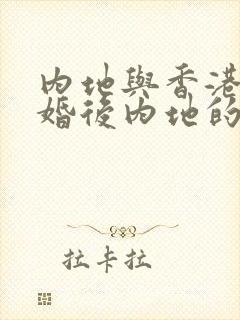 內地與香港
婚後內地的
拉卡拉